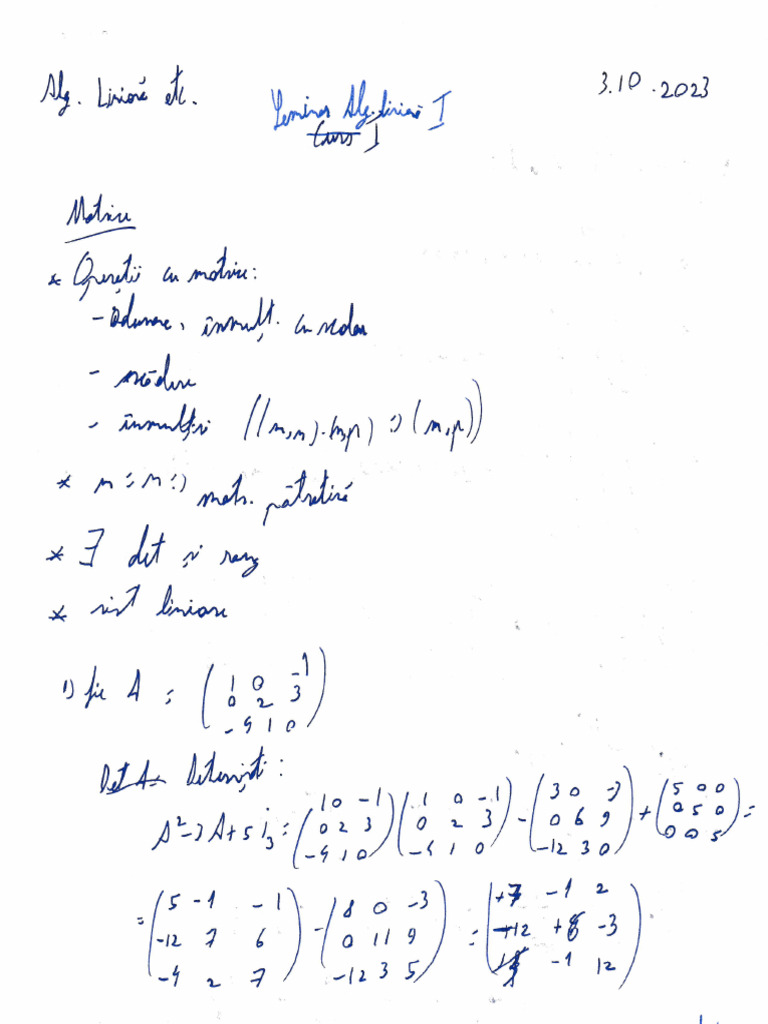 Alg. Liniară etc.
3.10.2023
Seminar Alg. liniară I
Curs I
Matrice
* Operații cu matrice:
- Adunare, înmulț. cu scalar
- scădere
- înmulțiri ((m,n).(n,p) => (m,p))
* m = n => matr. pătratică
* ∃ det și rang
* sist liniare
1) fie A = (1 0 -1
0 2 3
-4 1 0)
Det A = Determinați:
A² - 3A + 5 I₃ = (1 0 -1 / 0 2 3 / -4 1 0) (1 0 -1 / 0 2 3 / -4 1 0) - (3 0 -3 / 0 6 9 / -12 3 0) + (5 0 0 / 0 5 0 / 0 0 5) =
= (5 -1 -1 / -12 7 6 / -4 2 7) - (8 0 -3 / 0 11 9 / -12 3 5) = ( -1 2 / 12 -3 / -1 12)